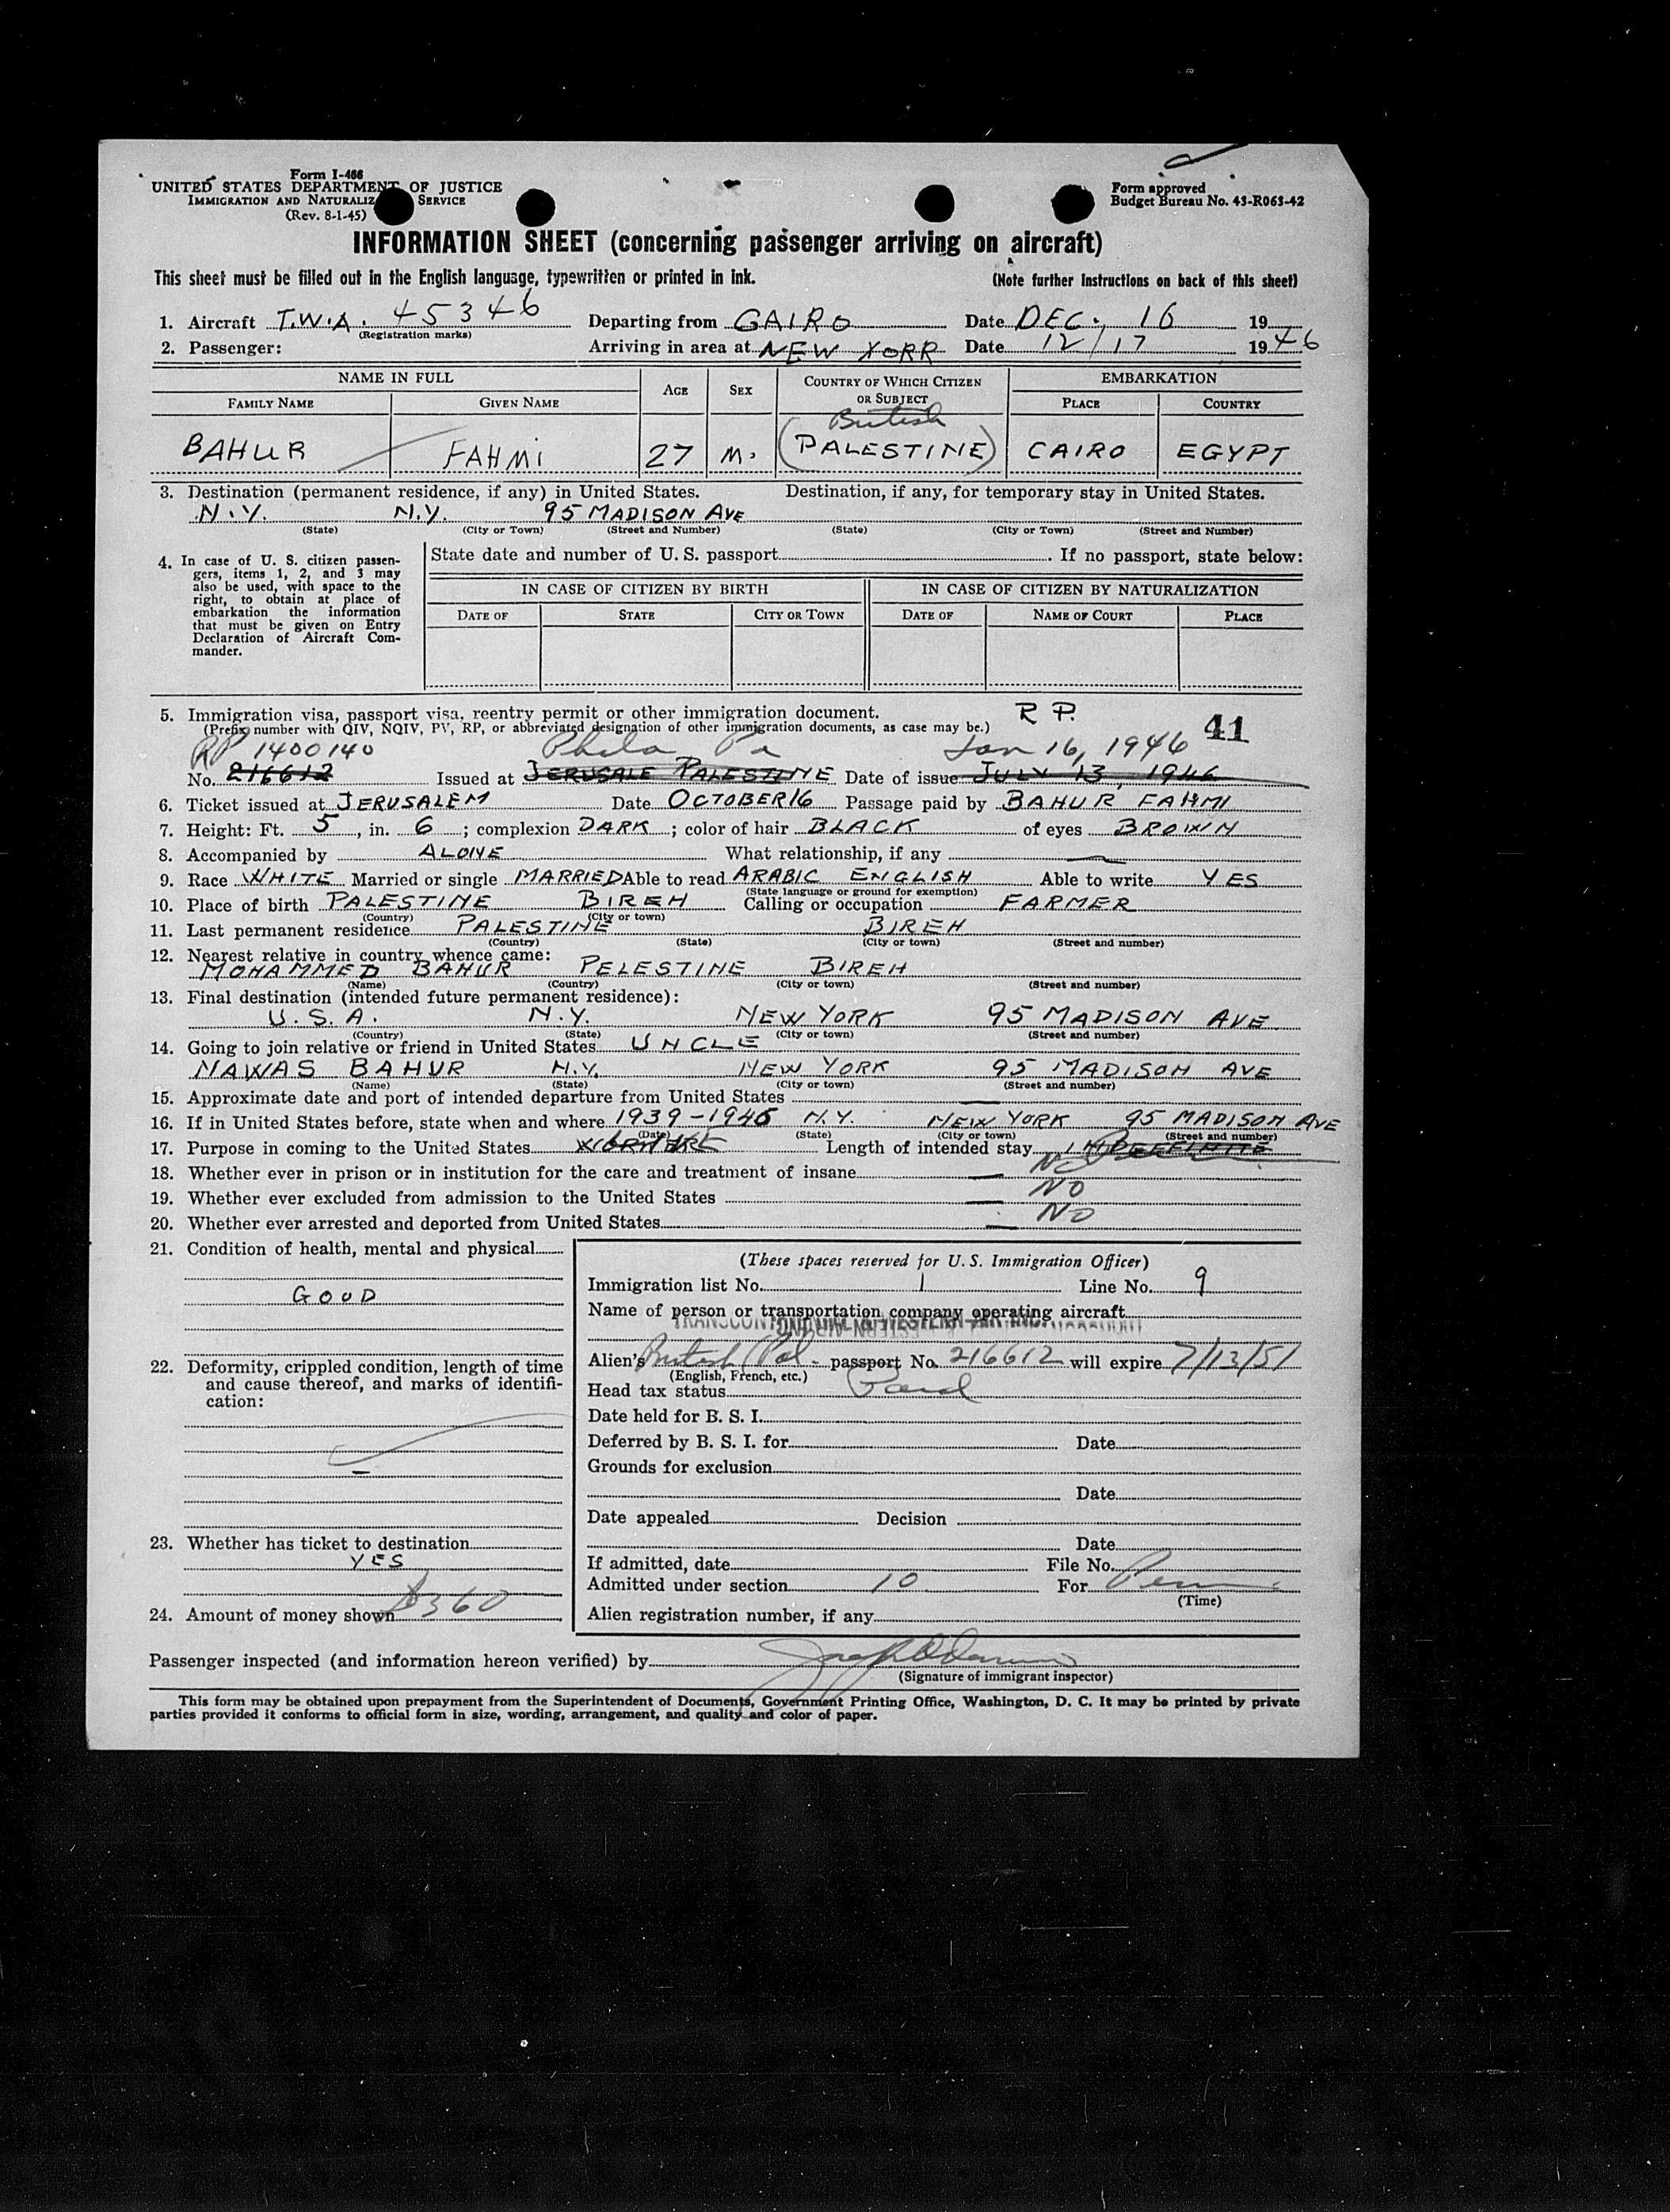 Form I-466
UNITED STATES DEPARTMENT OF JUSTICE
IMMIGRATION AND NATURALIZ SERVICE
(Rev. 8-1-45)
Form approved
Budget Bureau No. 43-R063-42
INFORMATION SHEET (concerning passenger arriving on aircraft)
This sheet must be filled out in the English language, typewritten or printed in ink. (Note further instructions on back of this sheet)
1. Aircraft T.W.A. 45346 Departing from CAIRO Date DEC., 16 19
(Registration marks)
2. Passenger: Arriving in area at NEW YORK Date 12/17 1946
NAME IN FULL AGE SEX COUNTRY OF WHICH CITIZEN OR SUBJECT EMBARKATION
FAMILY NAME GIVEN NAME PLACE COUNTRY
British
BAHUR FAHMI 27 M. (PALESTINE) CAIRO EGYPT
3. Destination (permanent residence, if any) in United States. Destination, if any, for temporary stay in United States.
N.Y. N.Y. 95 MADISON AVE
(State) (City or Town) (Street and Number) (State) (City or Town) (Street and Number)
4. In case of U. S. citizen passengers, items 1, 2, and 3 may also be used, with space to the right, to obtain at place of embarkation the information that must be given on Entry Declaration of Aircraft Commander.
State date and number of U. S. passport. If no passport, state below:
IN CASE OF CITIZEN BY BIRTH IN CASE OF CITIZEN BY NATURALIZATION
DATE OF STATE CITY OR TOWN DATE OF NAME OF COURT PLACE
5. Immigration visa, passport visa, reentry permit or other immigration document. R P. 41
(Prefix number with QIV, NQIV, PV, RP, or abbreviated designation of other immigration documents, as case may be.)
RP 1400140 Phila Pa Jan 16, 1946
No. 216612 Issued at JERUSALE PALESTINE Date of issue JULY 13, 1946
6. Ticket issued at JERUSALEM Date OCTOBER 16 Passage paid by BAHUR FAHMI
7. Height: Ft. 5, in. 6; complexion DARK; color of hair BLACK of eyes BROWN
8. Accompanied by ALONE What relationship, if any
9. Race WHITE Married or single MARRIED Able to read ARABIC ENGLISH Able to write YES
(State language or ground for exemption)
10. Place of birth PALESTINE BIREH Calling or occupation FARMER
(Country) (City or town)
11. Last permanent residence PALESTINE BIREH
(Country) (State) (City or town) (Street and number)
12. Nearest relative in country whence came:
MOHAMMED BAHUR PELESTINE BIREH
(Name) (Country) (City or town) (Street and number)
13. Final destination (intended future permanent residence):
U.S.A. N.Y. NEW YORK 95 MADISON AVE
(Country) (State) (City or town) (Street and number)
14. Going to join relative or friend in United States UNCLE
NAWAS BAHUR N.Y. NEW YORK 95 MADISON AVE
(Name) (State) (City or town) (Street and number)
15. Approximate date and port of intended departure from United States
16. If in United States before, state when and where 1939-1946 N.Y. NEW YORK 95 MADISON AVE
(Date) (State) (City or town) (Street and number)
17. Purpose in coming to the United States Length of intended stay INDEFINITE
18. Whether ever in prison or in institution for the care and treatment of insane NO
19. Whether ever excluded from admission to the United States NO
20. Whether ever arrested and deported from United States NO
21. Condition of health, mental and physical
GOOD
22. Deformity, crippled condition, length of time and cause thereof, and marks of identification:
23. Whether has ticket to destination
YES
24. Amount of money shown $360
(These spaces reserved for U. S. Immigration Officer)
Immigration list No. 1 Line No. 9
Name of person or transportation company operating aircraft
Alien's British Pal. passport No. 216612 will expire 7/13/51
(English, French, etc.)
Head tax status Paid
Date held for B. S. I.
Deferred by B. S. I. for Date
Grounds for exclusion
Date
Date appealed Decision
Date
If admitted, date File No.
Admitted under section 10 For Perm
(Time)
Alien registration number, if any
Passenger inspected (and information hereon verified) by
(Signature of immigrant inspector)
This form may be obtained upon prepayment from the Superintendent of Documents, Government Printing Office, Washington, D. C. It may be printed by private
parties provided it conforms to official form in size, wording, arrangement, and quality and color of paper.